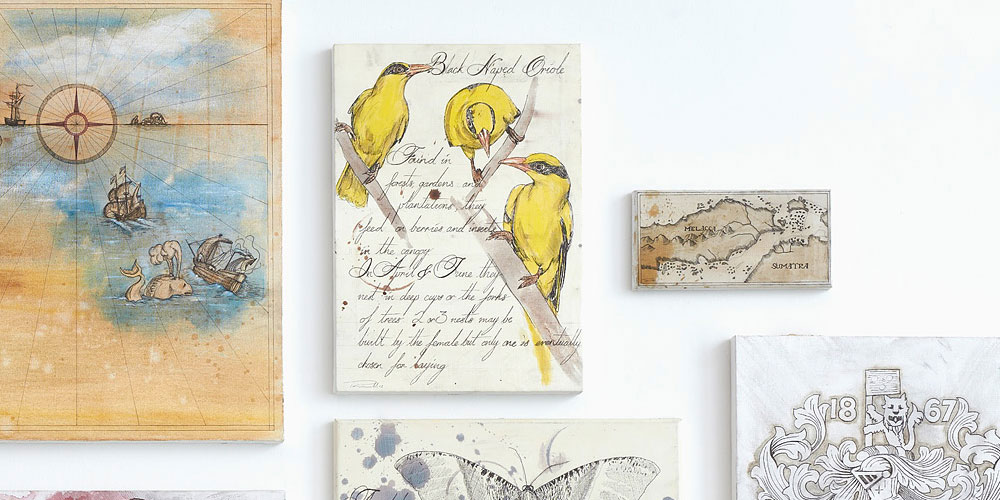 Black Naped Oriole
Found in
forests, gardens and
plantations, they
feed on berries and insects
in the canopy
In April & June they
nest in deep cups or the forks
of trees. 2 or 3 nests may be
built by the female but only one is eventually
chosen for laying
MELACCA
SUMATRA
18 67